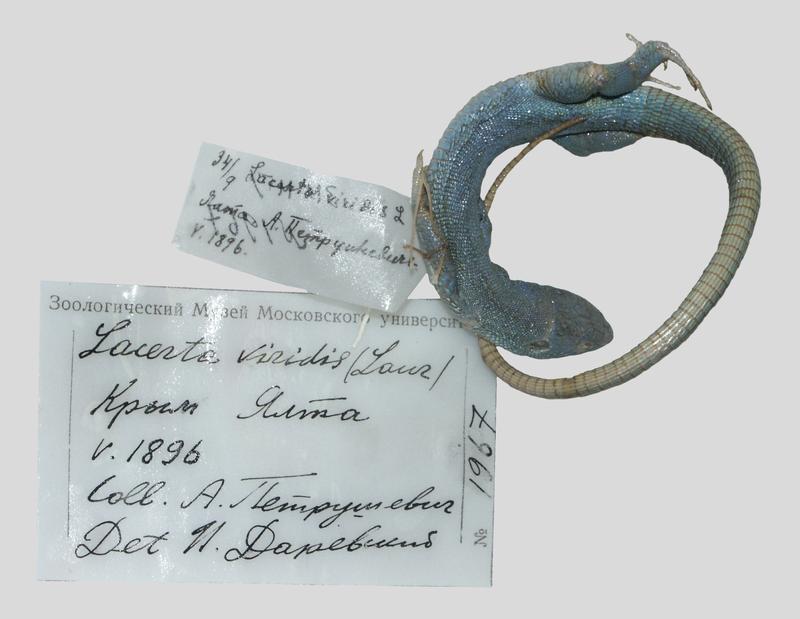 34/9 Lacerta viridis L
Ялта А. Петрушевич.
V. 1896.
Зоологический Музей Московского универси
Lacerta viridis (Laur)
Крым Ялта
V. 1896
Coll. А. Петрушевич
Det И. Даревский
№ 1967